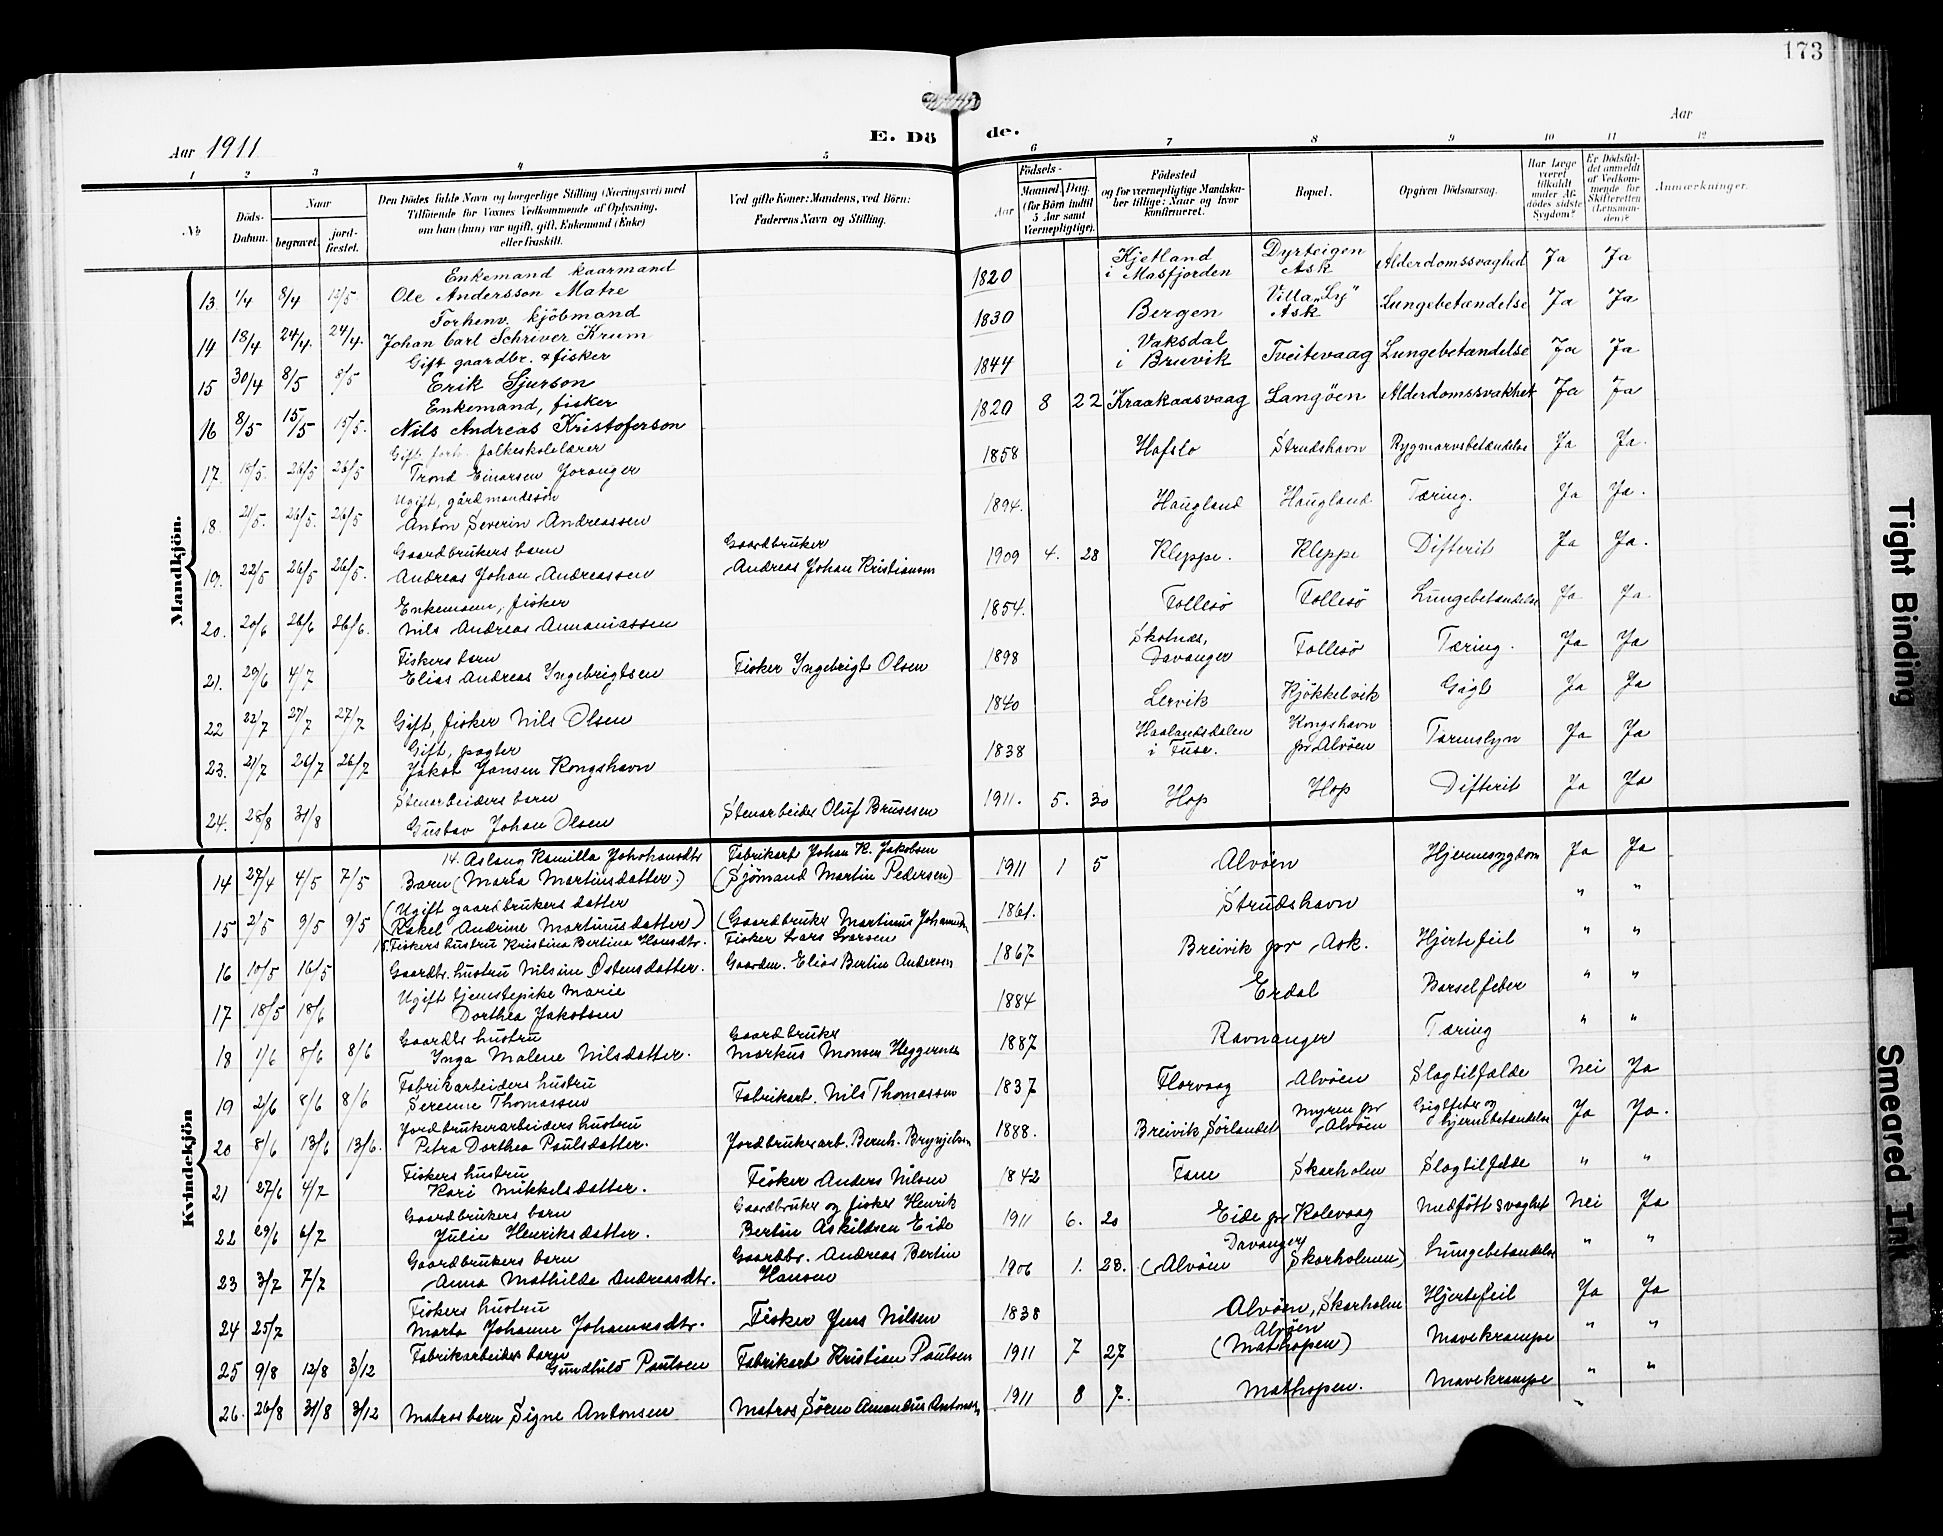 173
Aar 1911
E. Dö de.
Aar
1 2 3 4 5 6 7 8 9 10 11 12
No
Döds-Datum.
Naar
begravet.
jord-fæstet.
Den Dödes fulde Navn og borgerlige Stilling (Næringsvei) med
Tilföiende for Voxnes Vedkommende af Oplysning,
om han (hun) var ugift, gift, Enkemand (Enke)
eller fraskilt.
Ved gifte Koner: Mandens, ved Börn:
Faderens Navn og Stilling.
Födsels-
Aar
Maaned. Dag.
(for Börn indtil
5 Aar samt
Værnepligtige).
Födested
og for værnepligtige Mandska-
ber tillige: Naar og hvor
konfirmeret.
Bopæl.
Opgiven Dödsaarsag.
Har Læge
været
tilkaldt
under Af-
dödes sidste
Sygdom?
Er Dödsfal-
det anmeldt
af Vedkom-
mende for
Skifteretten
(Lensman-
den)?
Anmærkninger.
Mandkjön.
Enkemand kaarmand
13 1/4 8/4 Ole Andersson Matre 1820 Kjetland i Masfjorden Dyrteigen Ask Alderdomssvaghed Ja Ja
Forhenv. kjöbmand
14 18/4 24/4. 24/4. Johan Carl Schriver Krum 1830 Bergen Villa "Ly" Ask Lungebetændelse Ja Ja
Gift gaardbr. & fisker
15 30/4 8/5 8/5 Erik Sjurson 1844 Vaksdal i Bruvik Tveitevaag Lungebetændelse Ja Ja
Enkemand, fisker
16 8/5 15/5 15/5. Nils Andreas Kristoferson 1820 8 22 Kraakaasvaag Langöen Alderdomssvakhet Ja Ja
Gift, forh. folkeskolelærer
17. 18/5. 26/5 26/5 Trond Einarsen Joranger 1858 Hafslo Strudshavn Rygmarvsbetændelse Ja Ja.
Ugift, gårdmandssön
18. 21/5. 26/5. 26/5 Anton Severin Andreassen 1894. Haugland Haugland Tæring. Ja Ja.
Gaardbrukers barn Gaardbruker
19. 22/5 26/5 26/5. Andreas Johan Andreassen Andreas Johan Kristiansen 1909 4. 28 Kleppe. Kleppe Difterit Ja Ja.
Enkemann, fisker
20. 20/6 26/6 26/6. Nils Andreas Annaniassen 1854. Follesö Follesö Lungebetændelse Ja Ja.
Fiskers barn
21. 29/6 4/7 Elias Andreas Ingebrigtsen Fisker Ingebrigt Olsen 1898 Skotnes, Davanger Follesö Tæring. Ja Ja
22 22/7 27/7 27/7 Gift, fisker Nils Olsen 1840 Lervik Kjökkelvik Gigt Ja Ja
Gift, pagter
23. 21/7 26/7 26/7 Jakob Jansen Kongshavn 1838 Haalandsdalen i Fuse. Kongshavn pr Alvöen Tarmslyn Ja Ja
Stenarbeiders barn
24. 28/8 31/8 Gustav Johan Olsen Stenarbeider Oluf Brusesen 1911. 5. 30 Hop Hop Difterit Ja Ja
Kvindekjön
14. Aslaug Kamilla Johokansdtr Fabrikarb Johan K. Jakobsen
14 27/4 4/5 7/5 Barn (Maria Martinsdatter) (Sjömand Martin Pedersen) 1911 1 5 Alvöen Hjernesygdom Ja Ja
(Ugift gaardbrukers datter
15 2/5 9/5 9/5 Rakel Andrine Martinusdatter) (Gaardbruker Martinus Johannes 1861. Strudshavn " "
15. Fiskers hustru Kristina Bertina Hansdtr. Fisker Lars Larsen
16 10/5 16/5 Gaardbr. hustru Nilsine Östensdatter. Gaardm. Elias Bertin Andersen 1867 Breivik pr Ask. Hjertefeil " "
Ugift tjenestepike Marie
17 18/5 18/6 Dorthea Jakobsen 1884 Erdal Barselfeber " "
Gaardbr hustru Gaardbruker
18 1/6 8/6 8/6 Inga Malene Nilsdatter. Markus Monsen Heggernes 1887 Ravnanger Tæring " "
Fabrikarbeiders hustru
19 2/6 8/6 8/6 Serenne Thomassen Fabrikarb. Nils Thomassen 1837 Florvaag Alvöen Slagtilfælde Nei Ja
Jordbrukerarbeiders hustru
20 8/6 13/6 13/6. Petra Dorthea Paulsdatter. Jordbrukerarb. Bernh. Brynjelsen 1888. Breivik Sörlandet Myren pr Alvöen Gigtfeber og hjernebetændelse Ja Ja.
Fiskers hustru
21 27/6 4/7 Kari Mikkelsdatter. Fisker Anders Nilsen 1842 Fane Skarholm Slagtilfælde " "
Gaardbrukers barn Gaardbruker og fisker Henrik
22 29/6 6/7 Julie Henriksdatter. Bertin Askildsen Eide 1911 6. 20 Eide pr Kolevaag Medfött svaghet Nei Ja
Gaardbrukers barn Gaardbr. Andreas Bertin Davanger
23 3/7 7/7 Anna Mathilde Andreasdtr. Hansen 1906 1. 28. (Alvöen Skarholmen) Lungebetændelse " "
Fiskers hustru
24 25/7 Marta Johanne Johannesdtr. Fisker Jens Nilsen 1838 Alvöen, Skarholm Hjertefeil Ja Ja
Fabrikarbeiders barn Alvöen
25 9/8 12/8 3/12 Gundhild Paulsen Fabrikarb Kristian Paulsen 1911 7 27 (Mathopen) Mavekrampe " "
26. 26/8 31/8 3/12 Matros barn Signe Antonsen Matros Sören Amandus Antonsen 1911 8 7. Mathopen. Mavekrampe " "
Tight Binding
Smeared Ink